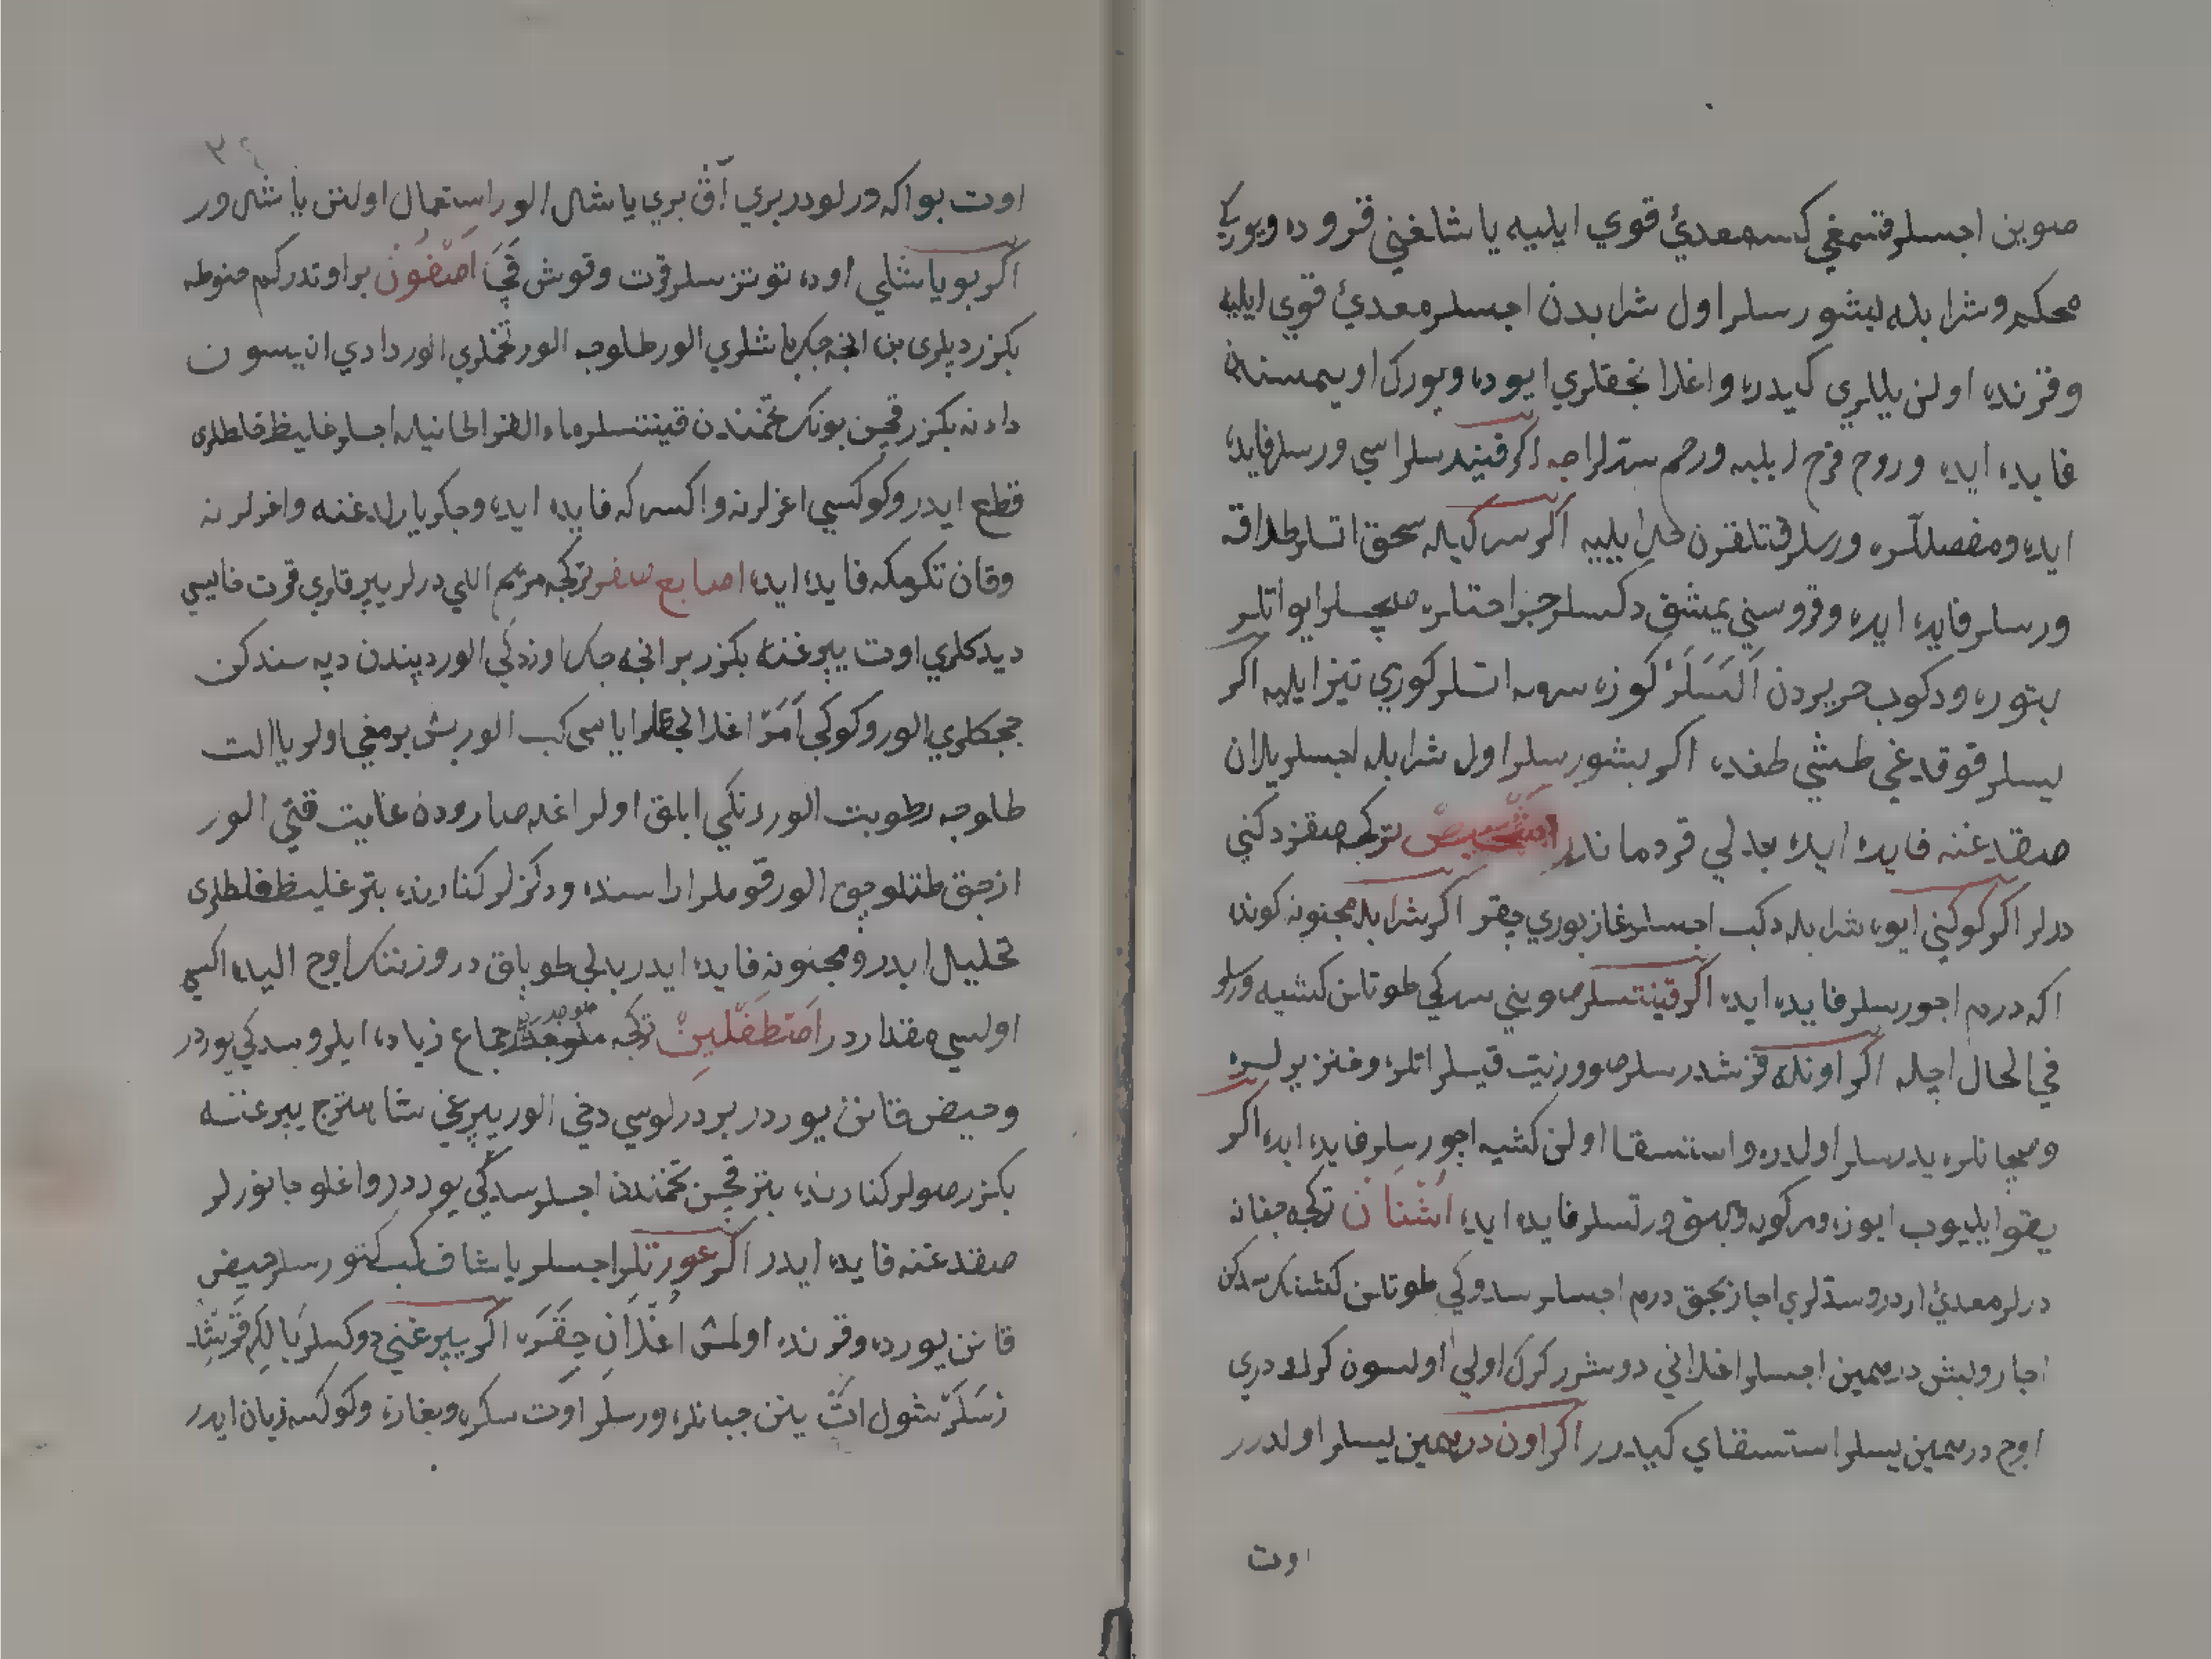 صوين اجسلر قتمغي كسه معدئ قوي ايليه ياشلغني قروده ويوركي
محكم وشرابله بشورسلر اول شرابدن اجسلر معدئ قوي ايليه
وقرنده اولن يللري كيدره واغلانجقلري ايوده ويورك اويمسنه
فايده ايده وروح فرح ايليه ورحم سدلر اجه اكر قيندرسلر اسي ورسلر فايده
ايده ومفصللره ورسلر قتلقرن حل ايليه اكر سركيله سحق اتسلر طلاقه
ورسلر فايده ايده وقروسني يمشق دكسلر جراحتلره صچسلر ايو اتلر
بتوره ودكوب حريردن السلر كوزه سرمه اتسلر كوري تيز ايليه اكر
يسلر قوقدغي طشي طغده اكر بشورسلر اول شرابله اجسلر يلان
صقدغنه فايده ايده بدلي قردماندر اشخيص تركجه صقز دكني
درلر اكر كوكني ايوه شرابله دكب اجسلر غاز بوري چقر اكر شرابله مجنونه كونده
اكه درم اجورسلر فايده ايده اكر قينتسلر صويني سدكي طوتلن كشيه ورسلر
في الحال اچله اكر اونله قرشدرسلر صو وزيت قيسلر اتلره وخنزيرلره
وصچانلره يدرسلر اولدره واستسقا اولن كشيه اچورسلر فايده ايده اكر
يقو ايليوب ايوزه ومركويه وبهق ورتسلر فايده ايده اشنان تركجه جفانه
درلر معدئ اردر وسدلري اجاز بجق درم اجسلر سدوكي طوتلن كشنك سدكن
اجار وبش درهمين اجسلر اغلاني دوشرر كرك اولي اولسون كرك دري
اوچ درهمين يسلر استسقاي كيدرر اكر اون درهمين يسلر اولدرر
اوت
اوت بو اكه درلودر بري آق بري ياشل الور استعمال اولنن ياشلدر
اكر بو ياشلي اوده توتزسلر قرت وقوش قچا اصفون براوتدركم
بكزر دپلري بن انجه جكر باشلري الور طلوجه الور تخملري الور دادي انيسون
دادنه بكزر قچن بونك تخمندن قينتسلر ماء القراطن ايله اجسلر غليظ خلطلري
قطع ايدر وكوكسي اغزلرنه واكسركه فايده ايده وجكر يارلدغنه واغزلرنه
وقان تكرمكه فايده ايده اصابع صفر تركجه مريم الي درلر يپرقلري قرت
ديدكلري اوت يپرغنه بكزر برانجه جك اوزدكي الور ديبندن دپه سندكن
ججكلري الور وكوكي امر اغلانجقلر اياسي كب الور بش برمغي اولر يا الت
طلوجه رطوبت الور رنكي ابلق اولر اغله صارودن غايت قتي الور
ازجق طتلوجق الور قوملر اراسنده ودكزلر كنارنده بتر غليظ خلطلري
تحليل ايدر ومجنونه فايده ايدر بدلي طوپلق در وزننك اوچ اليده اكي
اولسي مقداردر اصطفلين تركجه جماع زياده ايلر وسدكي يوردر
وحيض قانن يوردر بردرلوسي دخي الور يپرغي شاهترج يپرغنه
بكزر صولر كنارنده بتر قچن تخمندن اجسلر سدكي يوردر واغلو جانورلر
صقدغنه فايده ايدر اكر عورتلر اجسلر ياشاف كب كتورسلر حيض
قانن يورده وقرنده اولمش اغلان چقره اكر يپرغني دوكسلر بالله قرشد
رسلر شول ات ينن جبانلره ورسلر اوت سكره وبغازه وكوكسه زيان ايدر